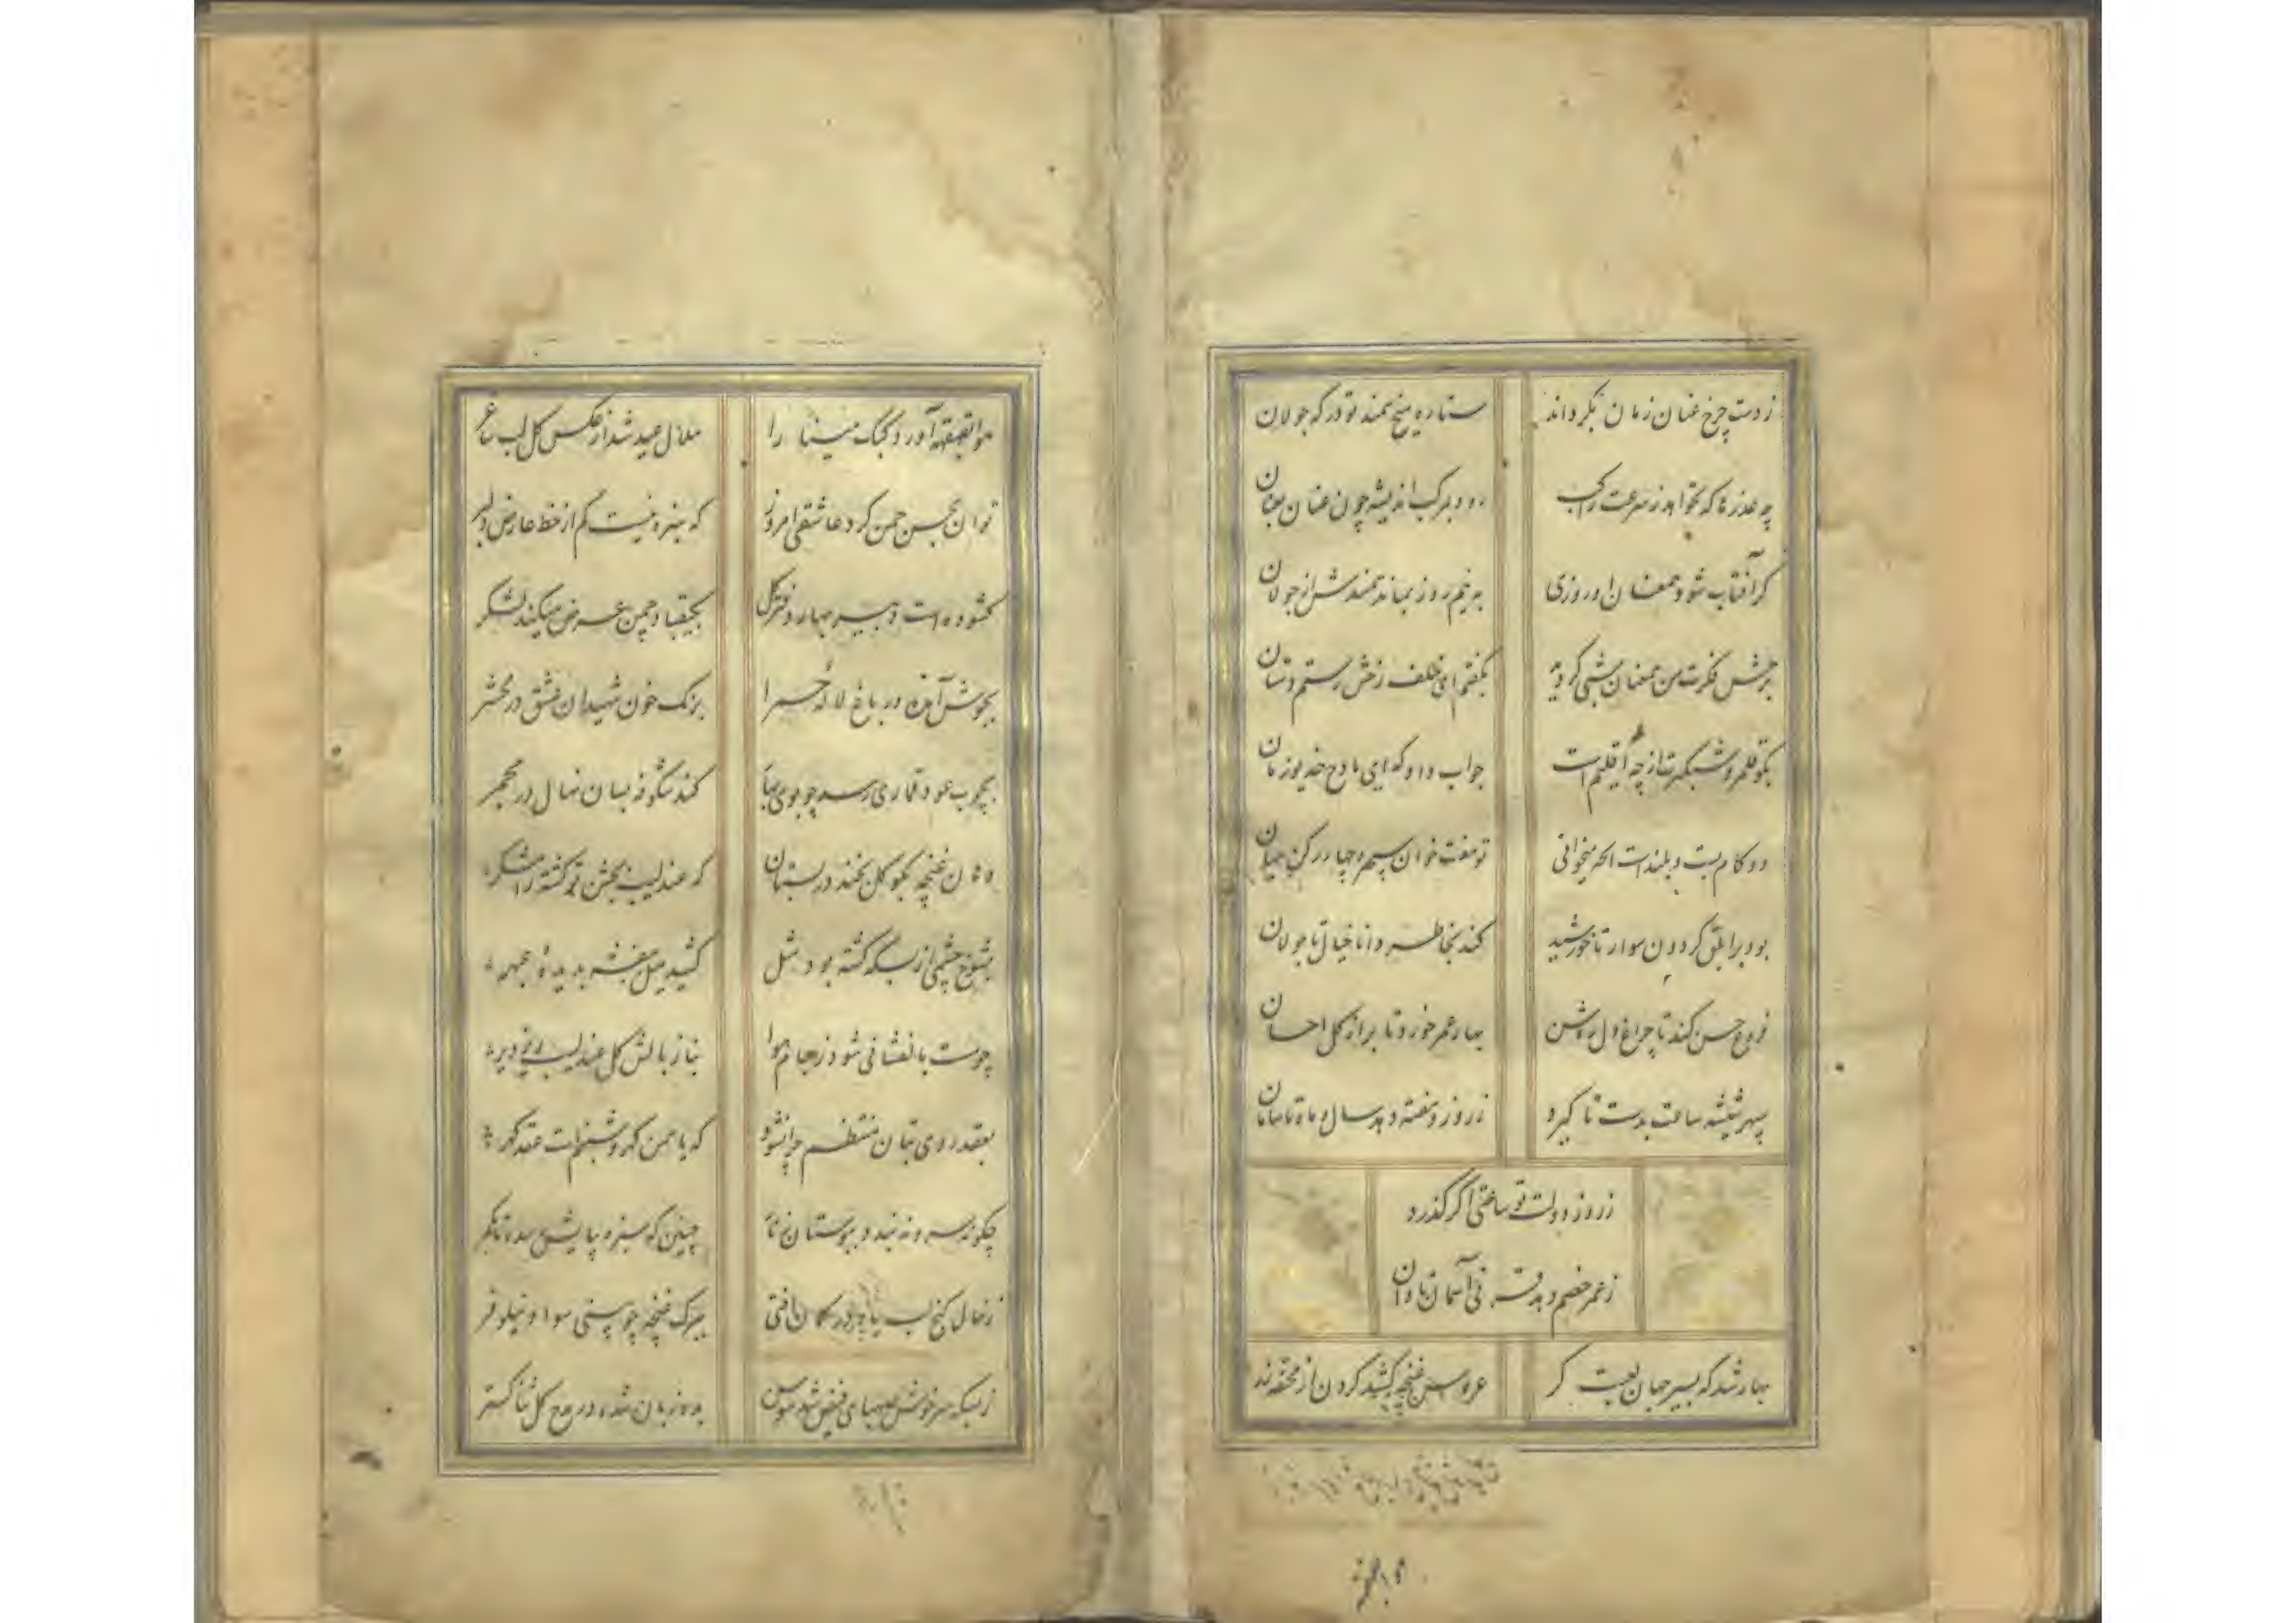 ز دست چرخ عنان زمان بگرداند ستاره میخ سمند تو در که جولان
چه عذرها که بخواهد ز سرعت راکب رود بمرکب اندیشه چون عنان
گر آفتاب شود همعنان او روزی به نیم روز بماند سمندش از جولان
برخش فکرت من همعنان شبی گردید بگفتم ای خلف رخش رستم دستان
بگو قلمرو شبگیرت از چه اقلیم است جواب داد که ای مادح خدیو زمان
دو کام پست و بلندست آنچه میخوانی تو هفت خوان سپهر و چهار رکن جهان
بود بر ابلق گردون سوار تا خورشید کند بخاطر دانا خیال تا جولان
فروغ حسن کند تا چراغ دل روشن بهار عمر خورد تا بر از گل احسان
سپهر شیشه ساعت بدست تا گیرد ز روز و هفته دهد سال و ماه تا سامان
ز روز دولت تو ساعتی اگر گذرد
ز عمر خصم دهد قرنی آسمان تاوان
بهار شد که بسیر جهان لعبت گر عروس غنچه کشید گردن از محفه
هوا بقهقهه آورد کبک مینا را هلال عید شد از عکس گل لب ساغر
توان بحسن چمن کرد عاشقی امروز که سبزه نیست کم از خط عارض دلبر
گشوده است دبیر بهار دفتر گل بکیقباد چمن عرض میکند لشکر
بجوش آمده در باغ لاله حمرا برنگ خون شهیدان عشق در محشر
بچرب عود قماری رسد چو بوی بهار کند شکوفه بسان نهال در مجمر
دهان غنچه بگو گل بخندد در بستان که عندلیب بجشن تو گشته
بشوخ چشمی از بسکه گشته بود مثل کشید میل بنفشه بدیده عبهر
چو مست بانفشانی شود ز جام هوا نیاز بالش گل عندلیب
بعقد روی بتان منتظم چرا نشود که یاسمن گهر و شبنم است عقد گهر
چگونه سرو نه بندد ببوستان چنین که سبزه بپایش
ز خال کنج لب یار در گمان افتی ببرگ غنچه چو بینی سواد نیلوفر
ز بسکه سرخوش صهبای فیض شد سوسن به ده زبان شده در مدح گل ثنا گستر